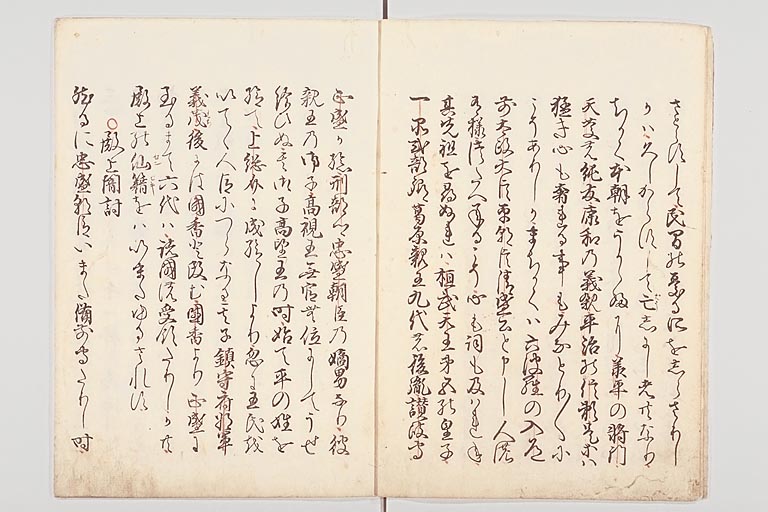 さとらすして民間の愁る所をしらさりし
か八久しからすして亡しにし者共なり
ちかく本朝をうかゝふに承平の将門
天慶の純友康和の義親平治の信頼是等は
猛き心も奢れる事もみなとり〳〵に
こそありしかまちかくハ六波羅の入道
前太政大臣平朝臣清盛公と申し人の
有様伝へ承るこそ心も詞も及はれね
其先祖を尋ぬれ八桓武天皇第五の皇子
一品式部卿葛原親王九代の後胤讃岐守
正盛か孫刑部卿忠盛朝臣の嫡男なり彼
親王の御子高視王無官無位にしてうせ
給ひぬ其御子高望王の時始て平の姓を
給て上総介に成給しより忽に王氏を
いてゝ人臣につらなる其子鎮守府将軍
義茂後には国香と改む国香より正盛に
至るまて六代は諸国の受領たりしかとも
殿上の仙籍をハいまたゆるされす
○殿上闇討
然るに忠盛朝臣いまた備前守たりし時